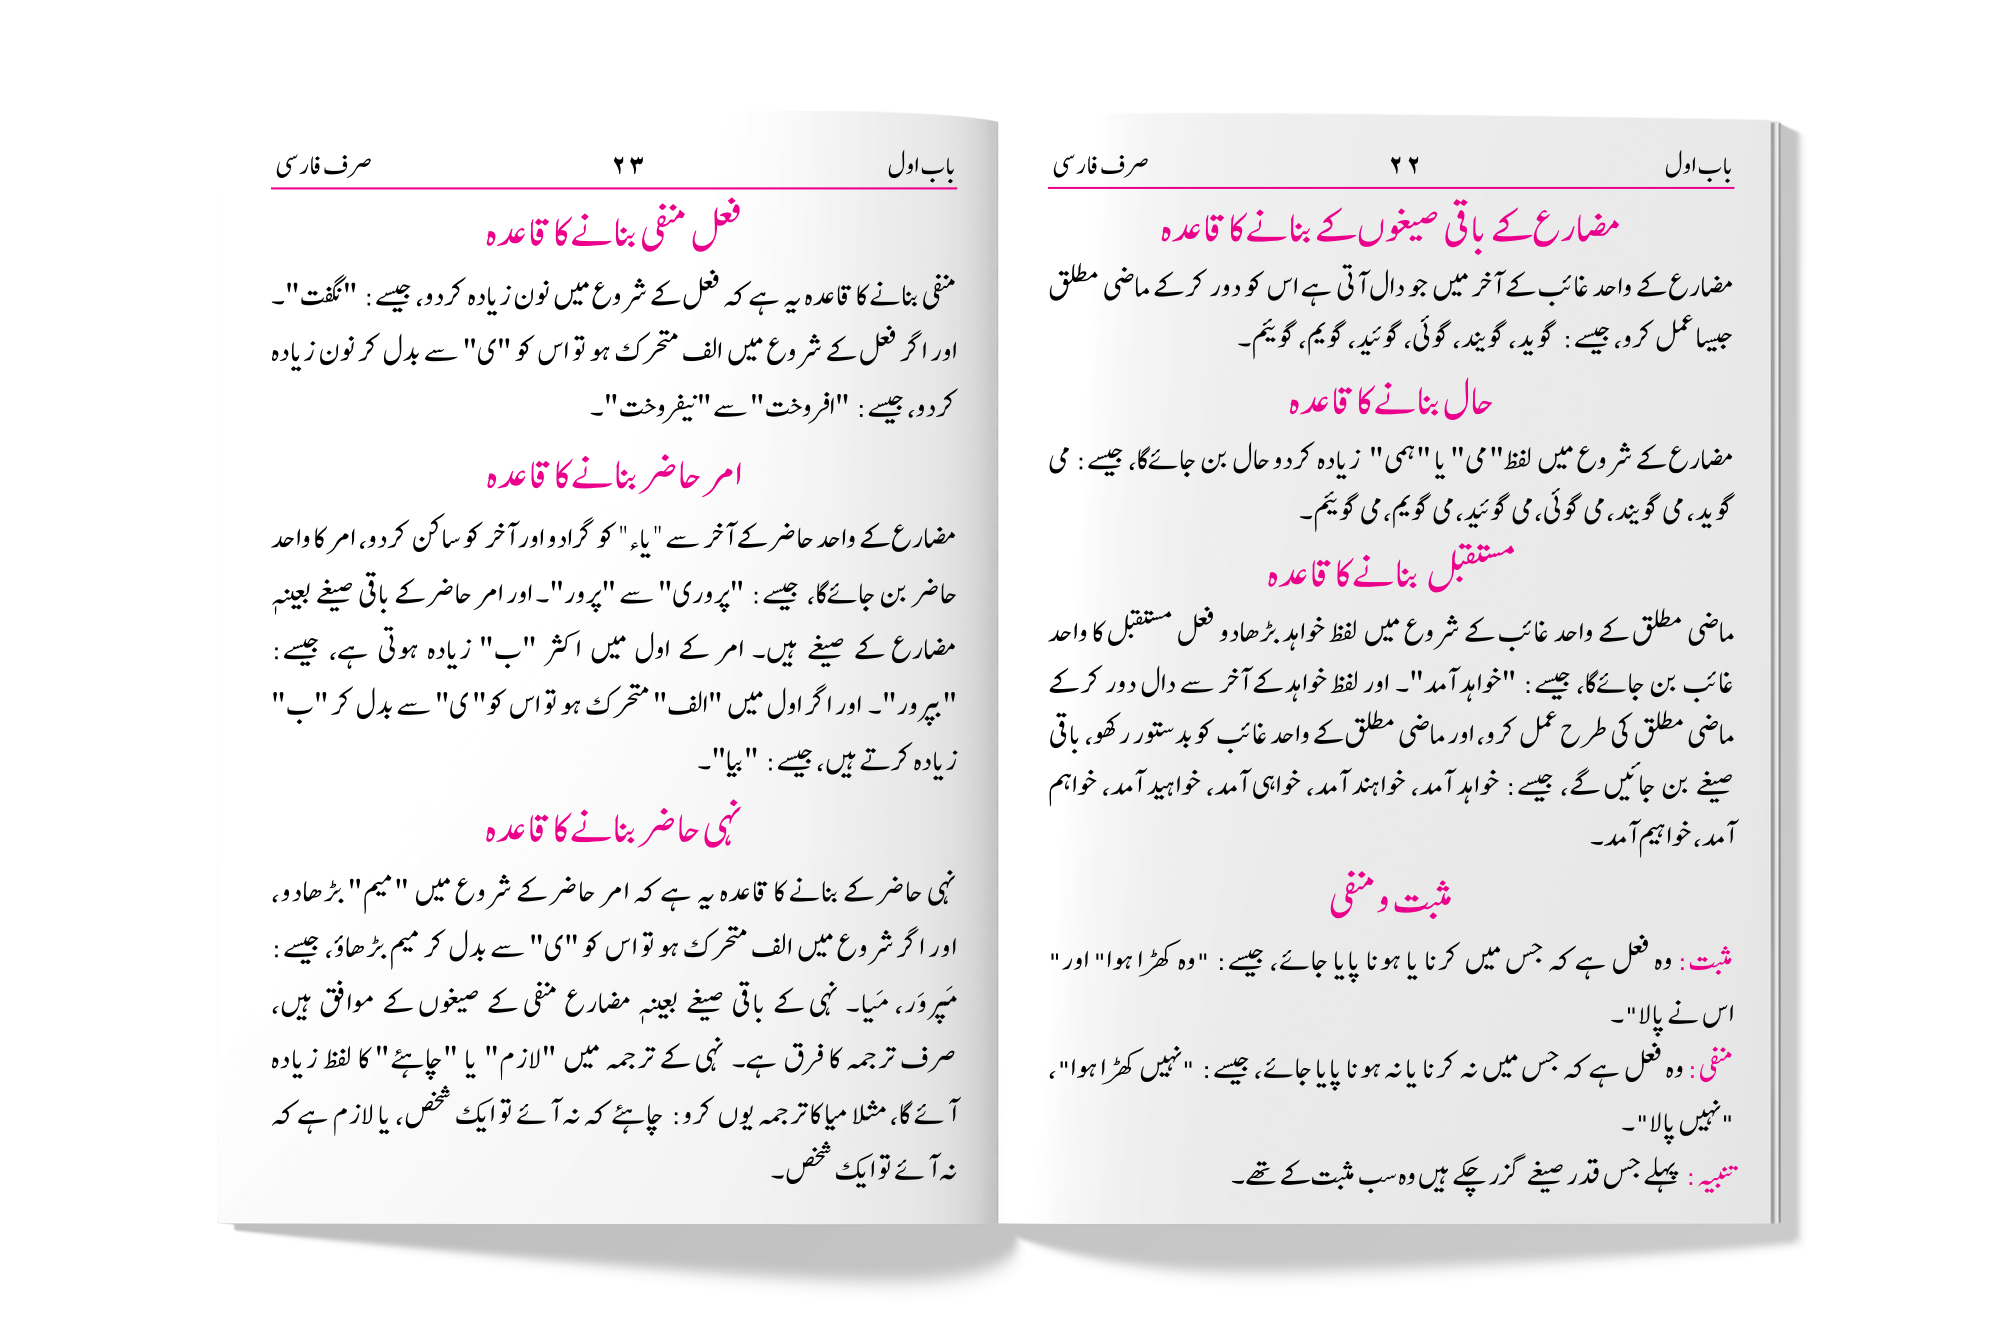 باب اول ۲۲ صرف فارسی
مضارع کے باقی صیغوں کے بنانے کا قاعدہ
مضارع کے واحد غائب کے آخر میں جو دال آتی ہے اس کو دور کرکے ماضی مطلق
جیسا عمل کرو، جیسے: گوید، گویند، گوئی، گوئید، گویم، گوئیم۔
حال بنانے کا قاعدہ
مضارع کے شروع میں لفظ "می" یا "ہمی" زیادہ کردو حال بن جائےگا، جیسے: می
گوید، می گویند، می گوئی، می گوئید، می گویم، می گوئیم۔
مستقبل بنانے کا قاعدہ
ماضی مطلق کے واحد غائب کے شروع میں لفظ خواہد بڑھادو فعل مستقبل کا واحد
غائب بن جائےگا، جیسے: "خواہد آمد"۔ اور لفظ خواہد کے آخر سے دال دور کرکے
ماضی مطلق کی طرح عمل کرو، اور ماضی مطلق کے واحد غائب کو بدستور رکھو، باقی
صیغے بن جائیں گے، جیسے: خواہد آمد، خواہند آمد، خواہی آمد، خواہید آمد، خواہم
آمد، خواہیم آمد۔
مثبت و منفی
مثبت: وہ فعل ہے کہ جس میں کرنا یا ہونا پایا جائے، جیسے: "وہ کھڑا ہوا" اور "
اس نے پالا"۔
منفی: وہ فعل ہے کہ جس میں نہ کرنا یا نہ ہونا پایا جائے، جیسے: "نہیں کھڑا ہوا"،
"نہیں پالا"۔
تنبیہ: پہلے جس قدر صیغے گزر چکے ہیں وہ سب مثبت کے تھے۔
باب اول ۲۳ صرف فارسی
فعل منفی بنانے کا قاعدہ
منفی بنانے کا قاعدہ یہ ہے کہ فعل کے شروع میں نون زیادہ کردو، جیسے: "نگفت"۔
اور اگر فعل کے شروع میں الف متحرک ہو تو اس کو "ی" سے بدل کر نون زیادہ
کردو، جیسے: "افروخت" سے "نیفروخت"۔
امر حاضر بنانے کا قاعدہ
مضارع کے واحد حاضر کے آخر سے "یاء" کو گرادو اور آخر کو ساکن کردو، امر کا واحد
حاضر بن جائےگا، جیسے: "پروری" سے "پرور"۔ اور امر حاضر کے باقی صیغے بعینہٖ
مضارع کے صیغے ہیں۔ امر کے اول میں اکثر "ب" زیادہ ہوتی ہے، جیسے:
"بپرور"۔ اور اگر اول میں "الف" متحرک ہو تو اس کو "ی" سے بدل کر "ب"
زیادہ کرتے ہیں، جیسے: "بیا"۔
نہی حاضر بنانے کا قاعدہ
نہی حاضر کے بنانے کا قاعدہ یہ ہے کہ امر حاضر کے شروع میں "میم" بڑھادو،
اور اگر شروع میں الف متحرک ہو تو اس کو "ی" سے بدل کر میم بڑھاؤ، جیسے:
مَپروَر، مَیا۔ نہی کے باقی صیغے بعینہٖ مضارع منفی کے صیغوں کے موافق ہیں،
صرف ترجمہ کا فرق ہے۔ نہی کے ترجمہ میں "لازم" یا "چاہئے" کا لفظ زیادہ
آئے گا، مثلا میا کا ترجمہ یوں کرو: چاہئے کہ نہ آئے تو ایک شخص، یا لازم ہے کہ
نہ آئے تو ایک شخص۔